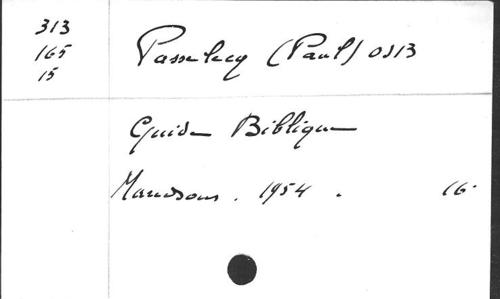 313
165
15
Passelecq (Paul) OSB
Guide Biblique
Maredsous . 1954 . 16°